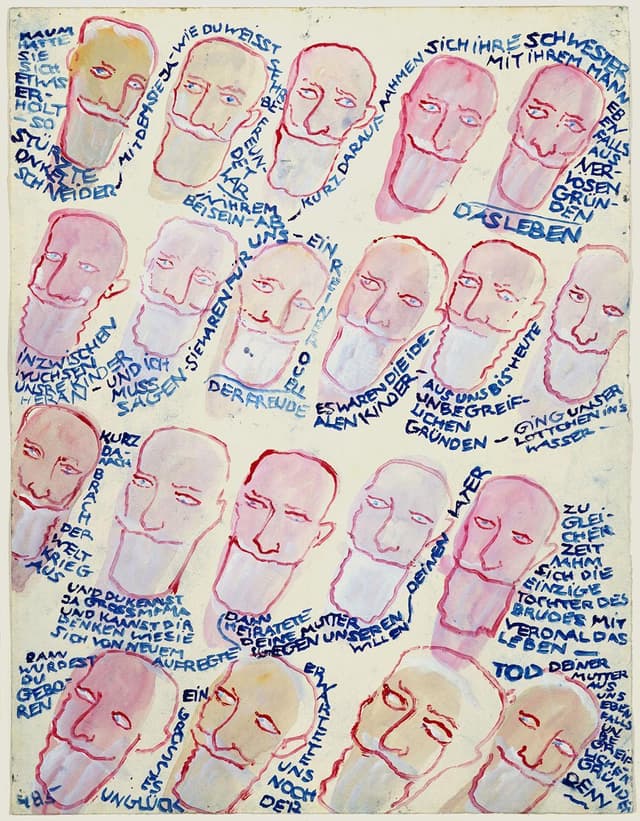 KAUM
HATTE
SIE
SICH
ETWAS
ER-
HOLT
- SO
STÜRZ
ONKETE
SCHNEIDER
MIT DEM SIE JA - WIE DU WEISST
SEHR
BE
FREUN-
DET
WAR
BEN IHREM
BEISEIN - AB
- KURZ DARAUF NAHMEN SICH IHRE SCHWESTER
MIT IHREM MANN
EB
EN
FALLS
AUS
NER-
VÖSEN
GRÜN-
DEN
DAS LEBEN
INZWISCHEN
WUCHSEN
UNSRE KINDER
HERAN
UND ICH
MUSS
SAGEN
SIE WAREN FÜR UNS - EIN
REINER
QUELL
DER FREUDE
ES WAREN DIE IDE-
ALEN KINDER
AUS UNS BIS HEUTE
UNBEGREIF-
LICHEN
GRÜNDEN -
GING UNSER
LOTTCHEN IN'S
WASSER -
KURZ
DA-
NACH
BRACH
DER
WELT
KRIEG
AUS
UND DU KENNST
JA GROSSMAMA
UND KANNST DIR
DENKEN WIE SIE
SICH VON NEUEM
AUFREGTE
DANN
HEIRATETE
DEINE MUTTER
GEGEN UNSEREN
WILLEN
DEINEN VATER
ZU
GLEI-
CHER
ZEIT
NAHM
SICH DIE
EINZIGE
TOCHTER DES
BRUDES MIT
VERONAL DAS
LEBEN -
DANN
WURDEST
DU
GEBO-
REN
EIN
GROSSES
UNGLÜCK
ERWARTETE
UNS
NOCH
DER
TOD DEINER
MUTTER
AUS
UNS
EBEN
FALLS
UN
GREIF
LICHEN
GRÜND
DENN
485